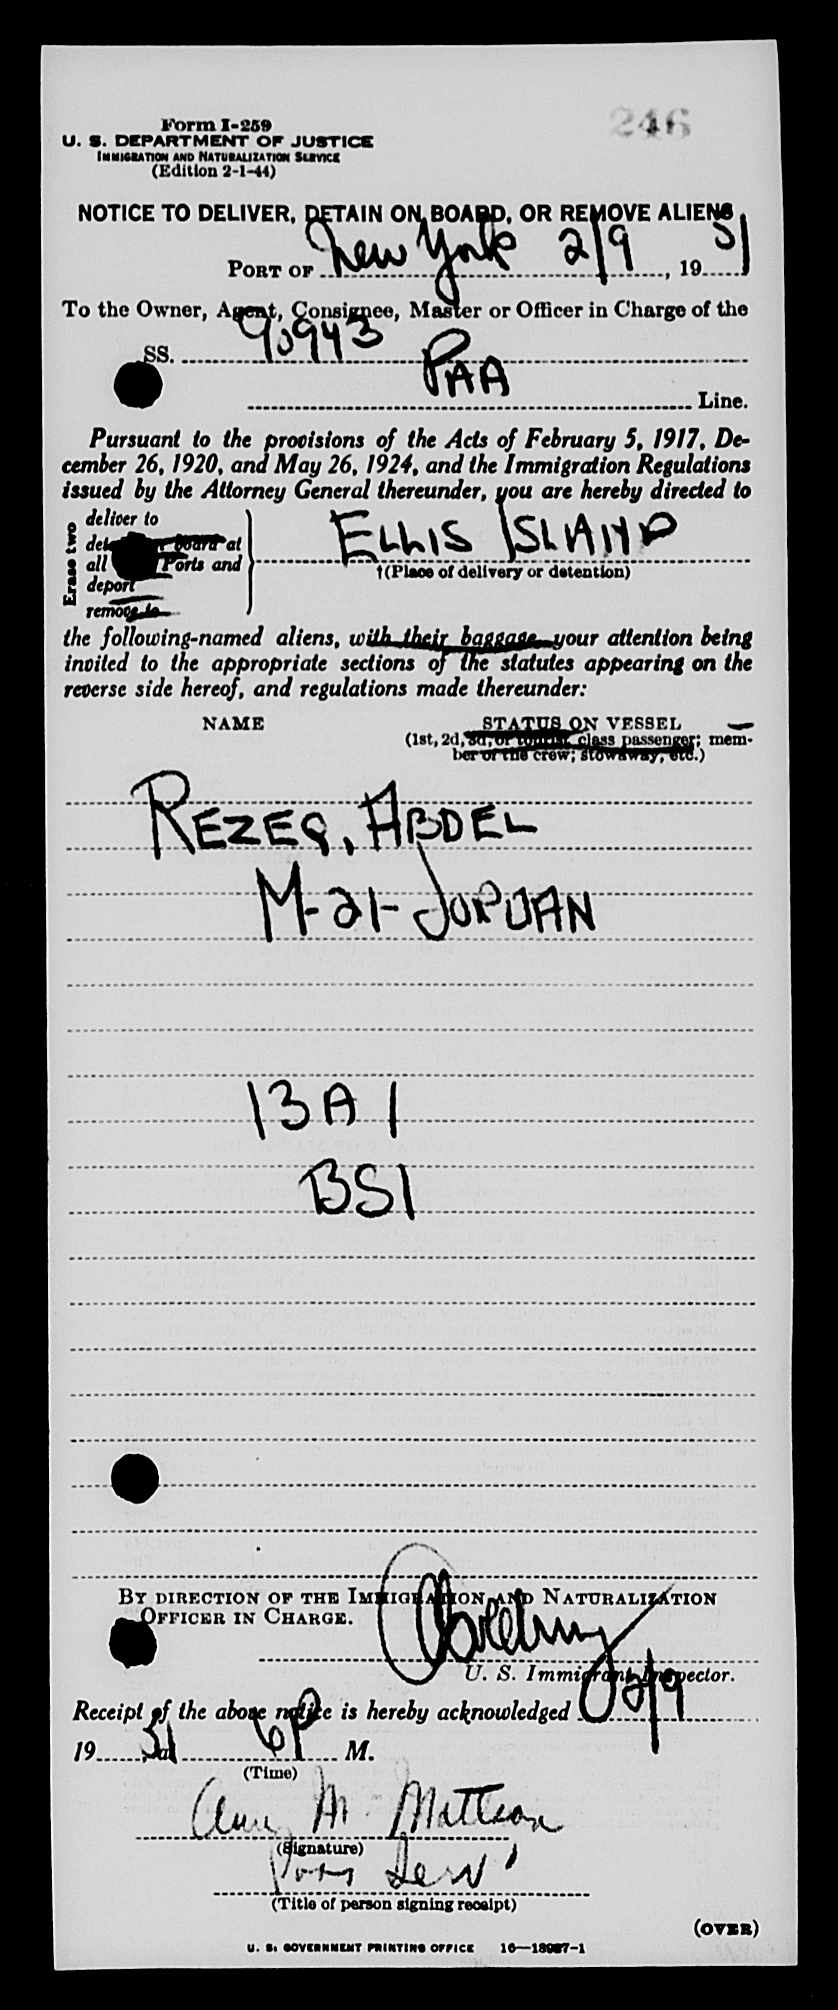 246
Form I-259
U. S. DEPARTMENT OF JUSTICE
IMMIGRATION AND NATURALIZATION SERVICE
(Edition 2-1-44)
NOTICE TO DELIVER, DETAIN ON BOARD, OR REMOVE ALIENS
PORT OF New York 2/9, 1951
To the Owner, Agent, Consignee, Master or Officer in Charge of the
SS. 90943
PAA Line.
Pursuant to the provisions of the Acts of February 5, 1917, De-
cember 26, 1920, and May 26, 1924, and the Immigration Regulations
issued by the Attorney General thereunder, you are hereby directed to
Erase two
deliver to
board at
all Ports and
deport
remove to
ELLIS ISLAND
†(Place of delivery or detention)
the following-named aliens, with their baggage your attention being
invited to the appropriate sections of the statutes appearing on the
reverse side hereof, and regulations made thereunder:
NAME STATUS ON VESSEL
(1st, 2d, 3d, or tourist class passenger; mem-
ber of the crew; stowaway, etc.)
REZEQ, ABDEL
M-21-JORDAN
13A1
BSI
BY DIRECTION OF THE IMMIGRATION AND NATURALIZATION
OFFICER IN CHARGE.
U. S. Immigrant Inspector.
Receipt of the above notice is hereby acknowledged 2/9
19 51, at 6P M.
(Time)
M. Mattson
(Signature)
Pass Serv
(Title of person signing receipt)
(OVER)
U. S. GOVERNMENT PRINTING OFFICE 16—13987-1